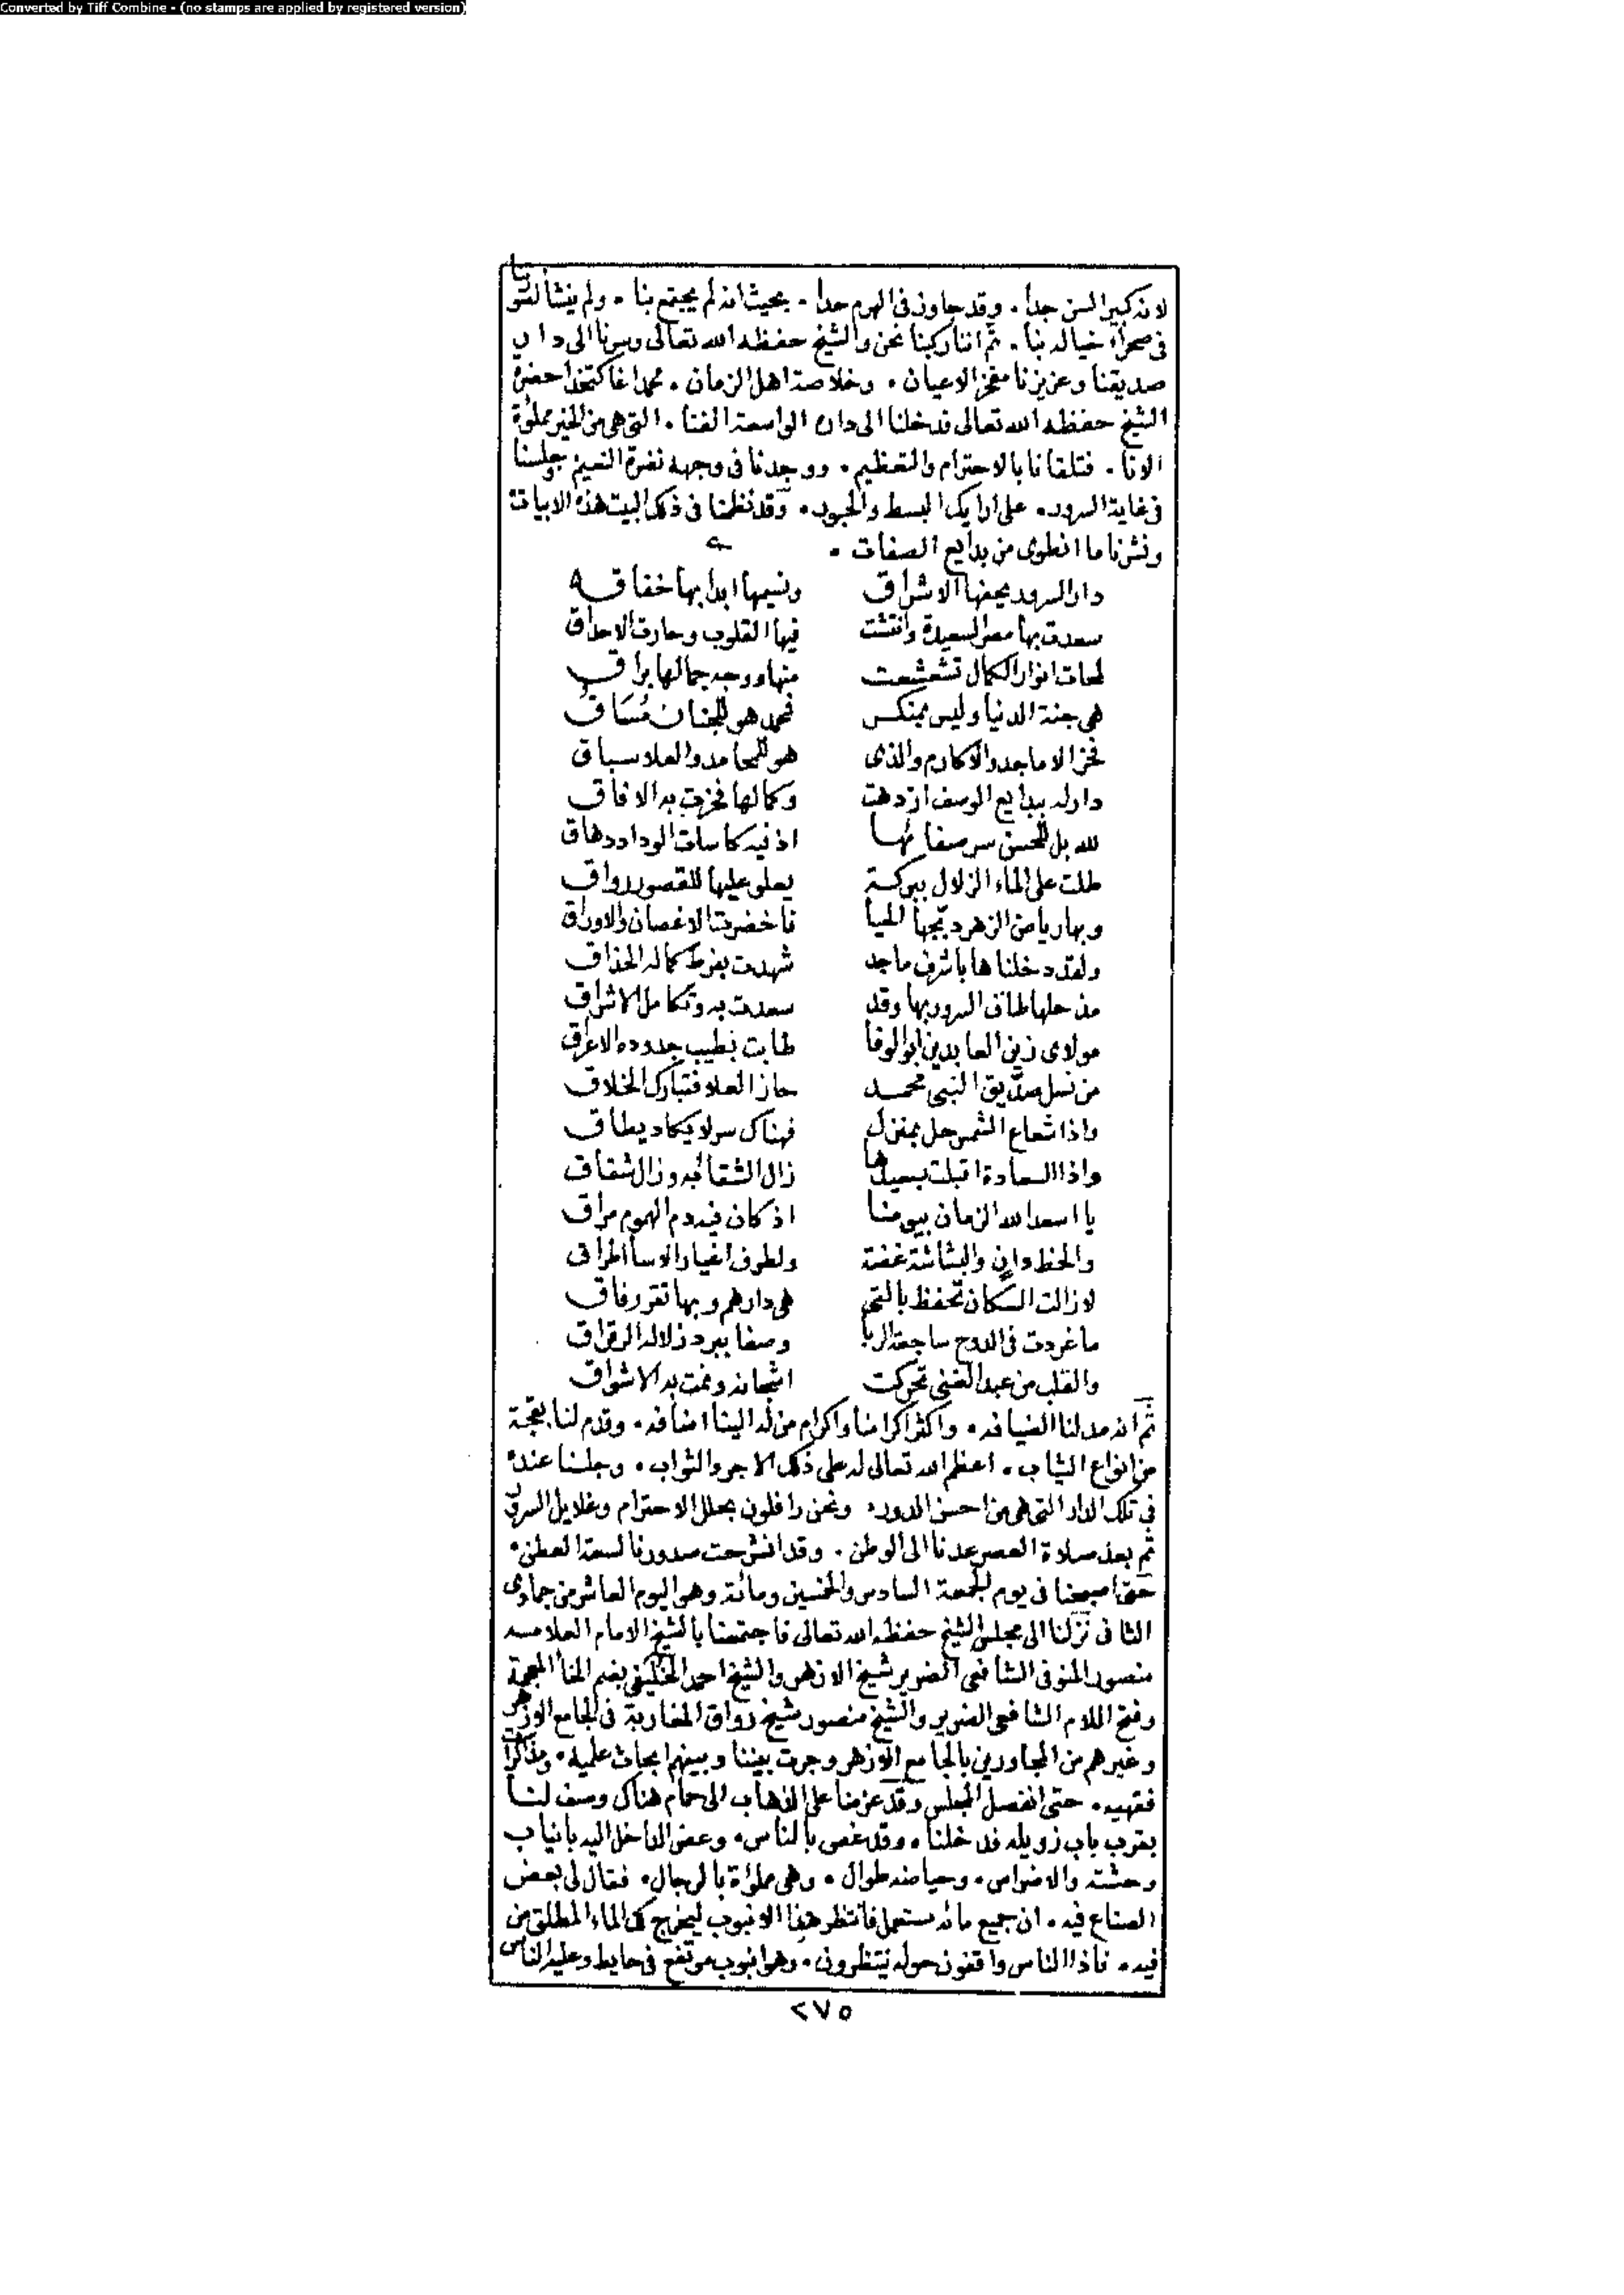 Converted by Tiff Combine - (no stamps are applied by registered version)
لانه كبير السن جدا . وقد جاوز فى الهرم حدا . بحيث انه لم يجتمع بنا . ولم ينشا لشو
فى صحراء خياله بنا . ثم اننا ركبنا نحن والشيخ حفظه الله تعالى وسرنا الى دار
صديقنا وعزيزنا مفخر الاعيان . وخلاصة اهل الزمان . محمد اغا كتخدا حضرة
الشيخ حفظه الله تعالى فدخلنا الى داره الواسعة الفنا . التى هى من الخير مملؤة
الانا . فتلقانا بالاحترام والتعظيم . ووجدنا فى وجهه نضرة النعيم وجلسنا
فى غاية السرور . على ارايك البسط والحبور . وقد نظمنا فى ذلك البيت هذه الابيات
ونشرنا ما انطوى من بدايع الصفات .
دار السرور يحفها الاشراق ونسيمها ابدا بها خفاق
سعدت بها مصر السعيدة وانتشت فيها القلوب وحارت الاحداق
لمحات انوار الكمال تشعشعت منها ووجه جمالها براق
هى جنة الدنيا وليس بمنكر فمحمد هو للجنان مُسَاق
فخر الاماجد والاكارم والذى هو للمحامد والعلا سباق
دار له ببدايع الوصف ازدهت وكمالها فخرت به الافاق
لله بل للحسن سر صفائها اذ فيه كاسات الوداد دهاق
طلت على الماء الزلال ببركة يعلو عليها للقصور رواق
وبها رياض الزهر دبجها الحيا فاخضرت الاغصان والاوراق
ولقد دخلناها باشرف ماجد شهدت بفرط كماله الحذاق
مذ حلها طاف السرور بها وقد سعدت به وتكامل الاشراق
مولاى زين العابدين ابو الوفا طابت بطيب جدوده الاعراق
من نسل صدّيق النبى محمد حاز العلا فتبارك الخلاق
واذا شعاع الشمس حل بمنزل فهناك سر لا يكاد يطاق
واذا السعادة اقبلت بسعيدها زال الشقا به وزال شقاق
يا اسعد الله الزمان بيومنا اذ كان فيه دم الهموم مراق
والحظ دان والبشاشة غضة ولطرف اغيار الاسا اطراق
لازالت السكان تحفظ بالتى هى دارهم وبها تقر رفاق
ما غردت فى الدوح ساجعة الربا وصفا ببرد زلاله الرقراق
والقلب من عبد الغنى تحركت اشجانه ونمت به الاشواق
ثم انه مد لنا الضيافه . واكثر اكرامنا واكرام من له الينا اضافه . وقدم لنا بقجة
من انواع الثياب . اعظم الله تعالى له على ذلك الاجر والثواب . وجلسنا عنده
فى تلك الدار التى هى من احسن الدور . ونحن رافلون بحلل الاحترام وغلايل السرور
ثم بعد صلاة العصر عدنا الى الوطن . وقد انشرحت صدورنا لسعة العطن .
حتى اصبحنا فى يوم الجمعة السادس والخمسين ومائة وهو اليوم العاشر من جمادى
الثانى نزلنا الى مجلس الشيخ حفظه الله تعالى فاجتمعنا بالشيخ الامام العلامه
منصور المنوفى الشافعى الضرير شيخ الازهر والشيخ احمد الخليفى بضم الخاء المعجمة
وفتح اللام الشافعى الضرير والشيخ منصور شيخ رواق المغاربة فى الجامع الازهر
وغيرهم من المجاورين بالجامع الازهر وجرت بيننا وبينهم ابحاث علميه . ومذاكرات
فقهيه . حتى انفصل المجلس وقد عزمنا على الذهاب الى حمام هناك وصف لنا
بقرب باب زويله فدخلنا . وقد غص بالناس . وعض الداخل اليه بانياب
وحشته والاضراس . وحياضه طوال . وهى مملؤة بالرجال . فقال لى بعض
الصناع فيه . ان جميع مائه مستعمل فانتظر هذا الانبوب ليخرج لك الماء المطلق من
فيه . فاذا الناس واقفون حوله ينتظرون . وهو انبوب مرتفع فى حايط وعليه الناس
٢٧٥